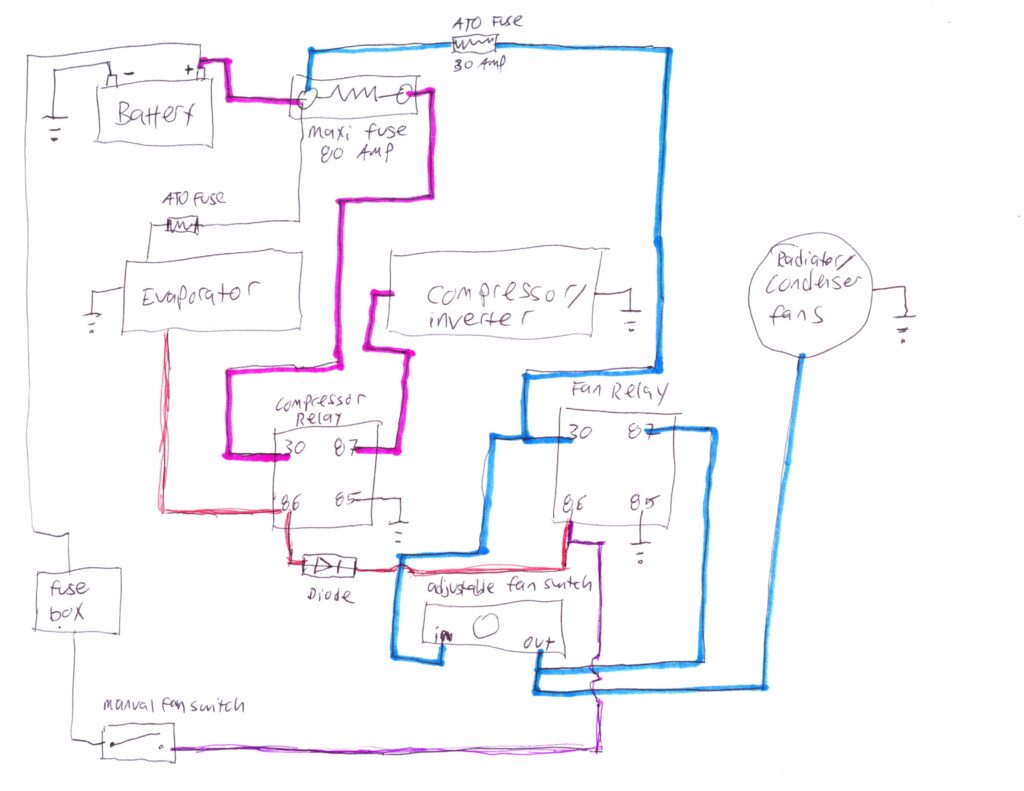 ATO Fuse
30 Amp
- +
Battery
maxi fuse
80 Amp
ATO Fuse
Evaporator
Compressor/
inverter
Radiator/
Condenser
fans
Compressor
Relay
30 87
86 85
Fan Relay
30 87
86 85
Diode
adjustable fan switch
in
out
fuse
box
manual fan switch